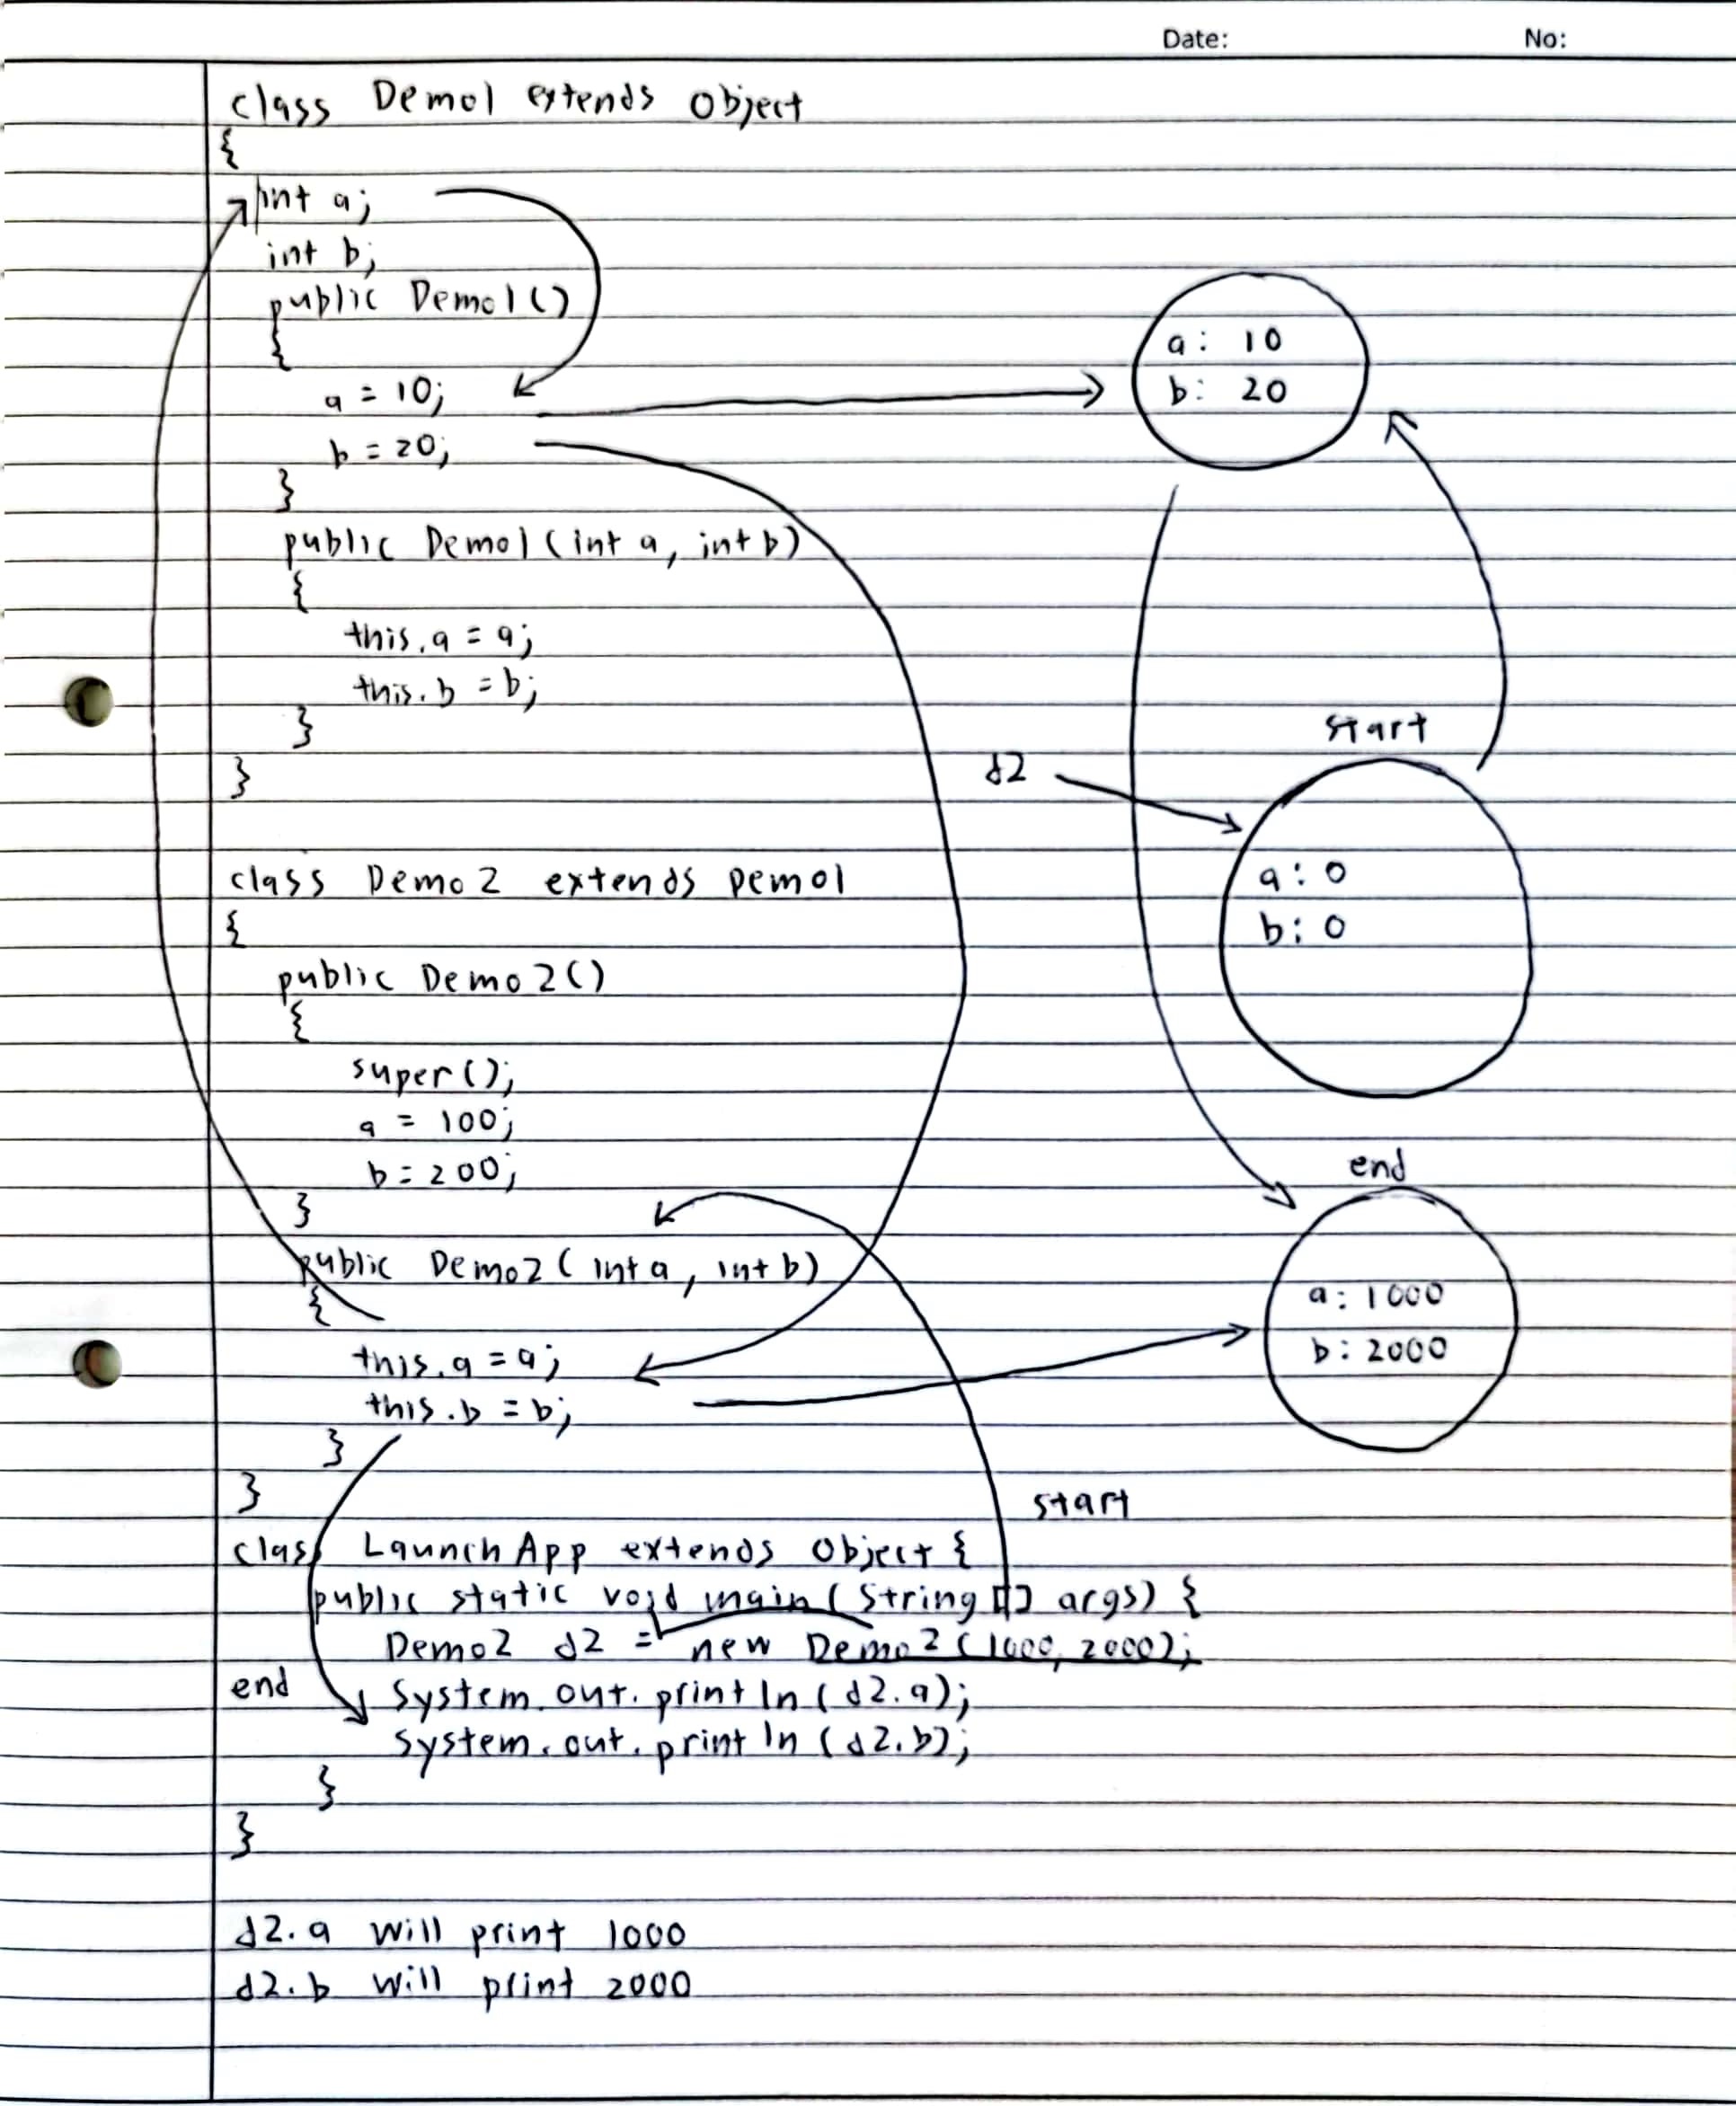 Date: No:
class Demo1 extends Object
{
int a;
int b;
public Demo1()
{
a = 10;
b = 20;
}
public Demo1(int a, int b)
{
this.a = a;
this.b = b;
}
}
class Demo2 extends Demo1
{
public Demo2()
{
super();
a = 100;
b = 200;
}
public Demo2(int a, int b)
{
this.a = a;
this.b = b;
}
}
class LaunchApp extends Object {
public static void main(String [] args) {
Demo2 d2 = new Demo2(1000, 2000);
end System.out.println(d2.a);
System.out.println(d2.b);
}
}
d2.a will print 1000
d2.b will print 2000
a: 10
b: 20
start
d2
a: 0
b: 0
end
a: 1000
b: 2000
start